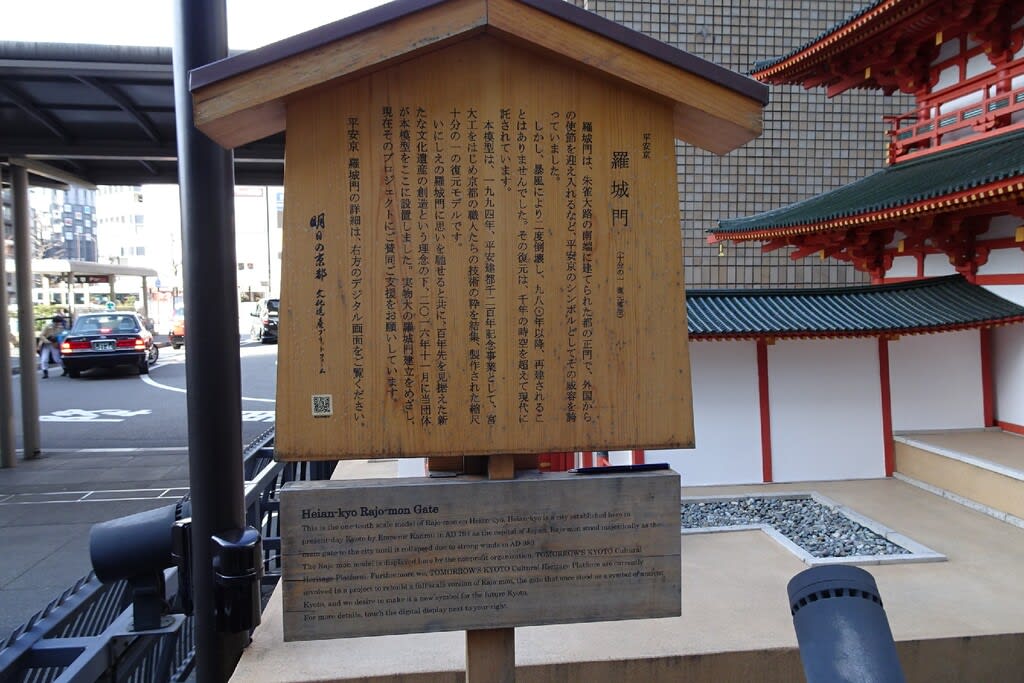 平安京
羅城門
(十分の一 復元模型)
羅城門は、朱雀大路の南端に建てられた都の正門で、外国から
の使節を迎え入れるなど、平安京のシンボルとしてその威容を誇
っていました。
しかし、暴風により二度倒壊し、九八〇年以降、再建されるこ
とはありませんでした。その復元は、千年の時空を超えて現代に
託されています。
本模型は、一九九四年、平安建都千二百年記念事業として、宮
大工をはじめ京都の職人たちの技術の粋を結集、製作された縮尺
十分の一の復元モデルです。
いにしえの羅城門に思いを馳せると共に、百年先を見据えた新
たな文化遺産の創造という理念の下、二〇一六年十一月に当団体
が本模型をここに設置しました。実物大の羅城門建立をめざし、
現在そのプロジェクトにご賛同ご支援をお願いしています。
平安京 羅城門の詳細は、右方のデジタル画面をご覧ください。
明日の京都 文化遺産プラットフォーム
Heian-kyo Rajo-mon Gate
This is the one-tenth scale model of Rajo-mon on Heian-kyo. Heian-kyo is a city established here in
present-day Kyoto by Emperor Kanmu in AD 794 as the capital of Japan. Rajo-mon stood majestically as the
main gate to the city until it collapsed due to strong winds in AD 980.
The Rajo-mon model is displayed here by the nonprofit organization, TOMORROW'S KYOTO Cultural
Heritage Platform. Furthermore, we, TOMORROW'S KYOTO Cultural Heritage Platform are currently
involved in a project to rebuild a full-scale version of Rajo-mon, the gate that once stood as a symbol of ancient
Kyoto, and we desire to make it a new symbol for the future Kyoto.
For more details, touch the digital display next to your right.